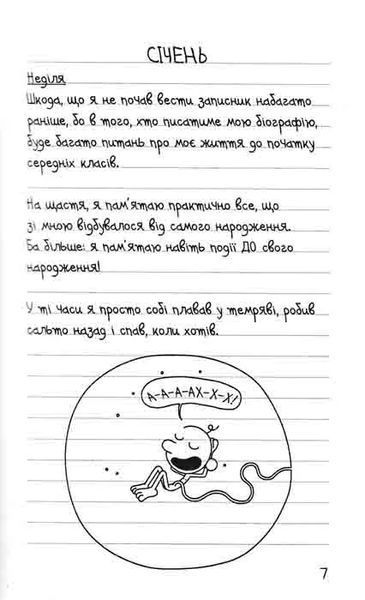 СІЧЕНЬ
Неділя
Шкода, що я не почав вести записник набагато
раніше, бо в того, хто писатиме мою біографію,
буде багато питань про моє життя до початку
середніх класів.
На щастя, я пам'ятаю практично все, що
зі мною відбувалося від самого народження.
Ба більше: я пам'ятаю навіть події ДО свого
народження!
У ті часи я просто собі плавав у темряві, робив
сальто назад і спав, коли хотів.
А-А-А-АХ-Х-Х!
7